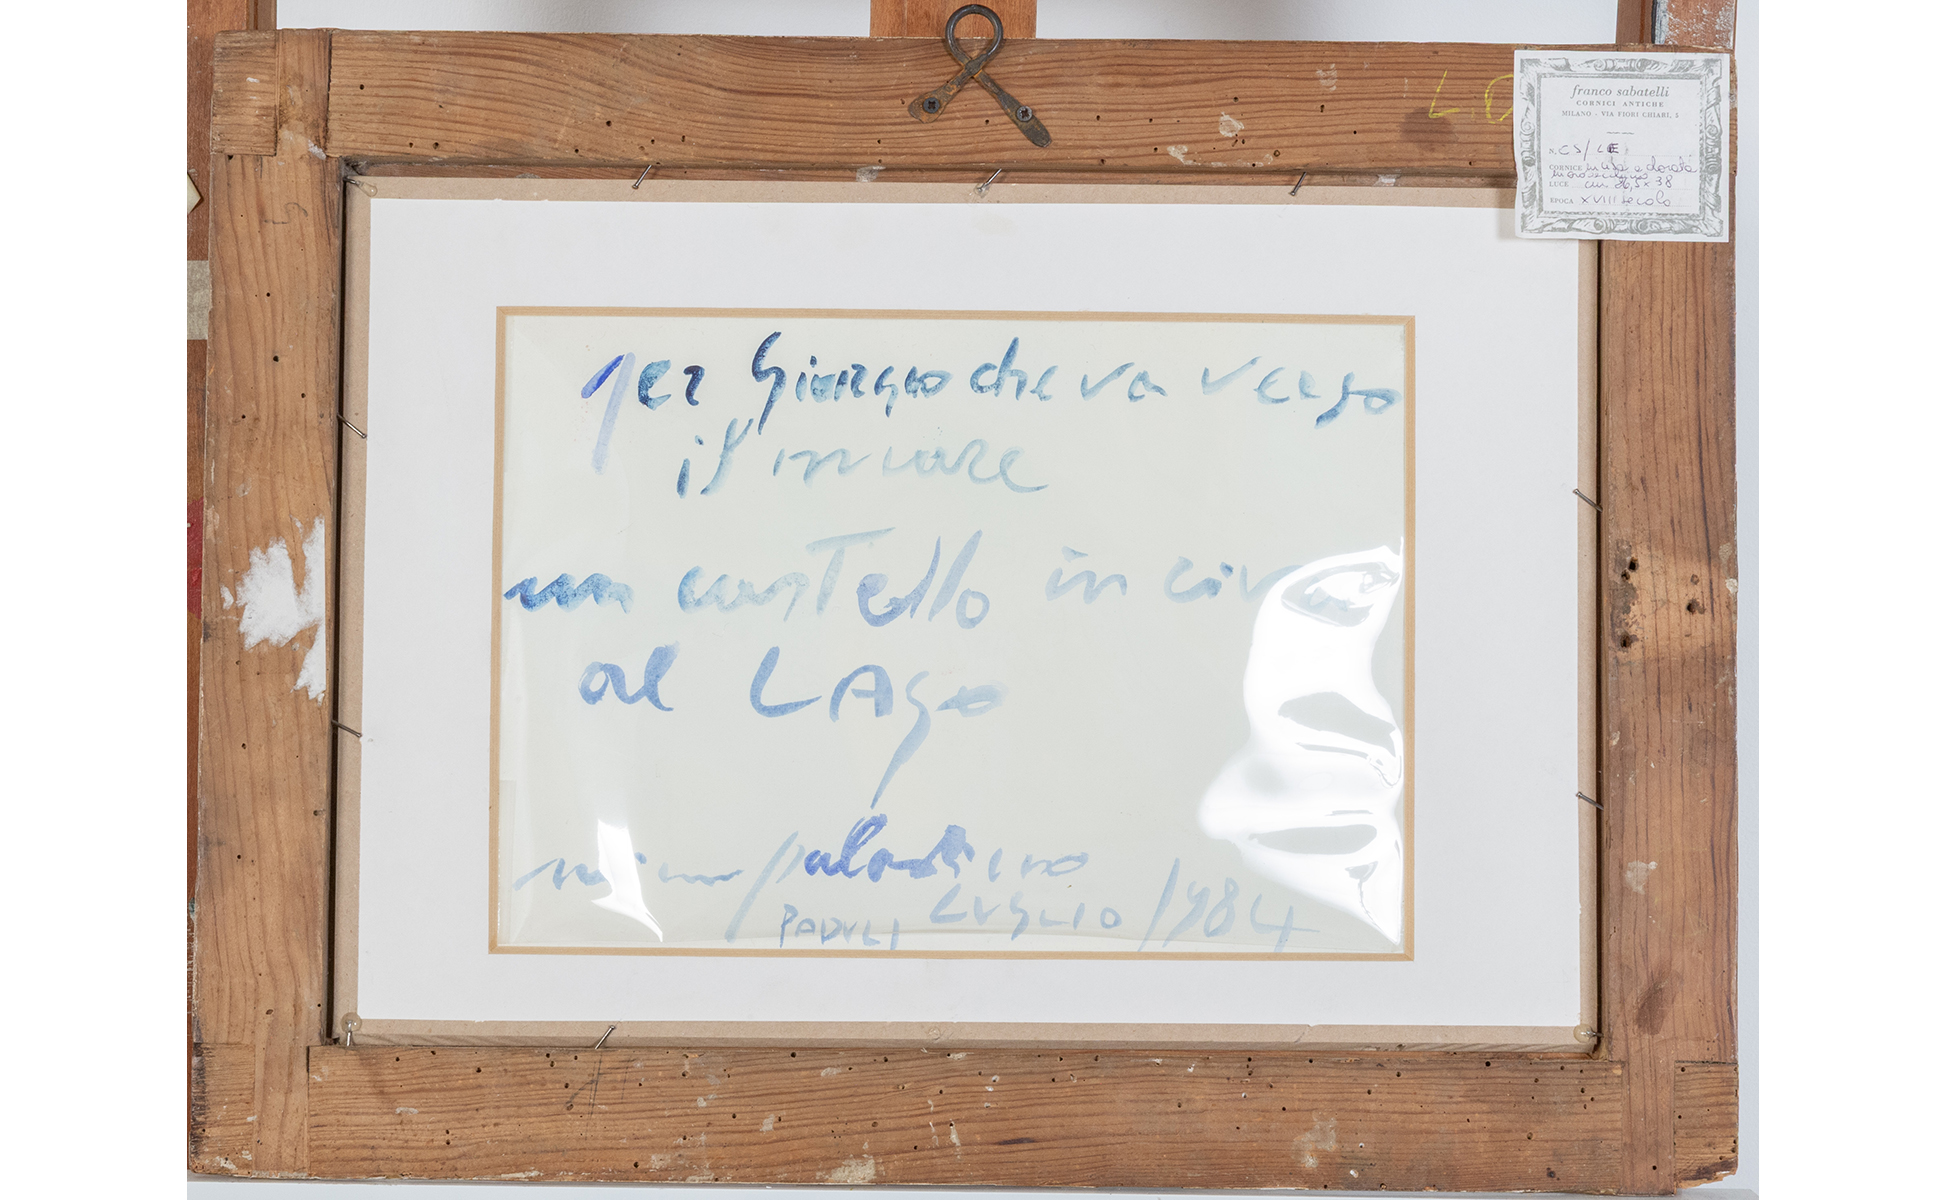 L.D
franco sabatelli
CORNICI ANTICHE
MILANO - VIA FIORI CHIARI, 5
N. CS/LE
CORNICE dorata
LUCE cm 26,5 x 38
EPOCA XVIII secolo
per Giorgio che va verso
il mare
un castello in riva
al LAGO
mimmo paladino
PADULI LUGLIO 1984